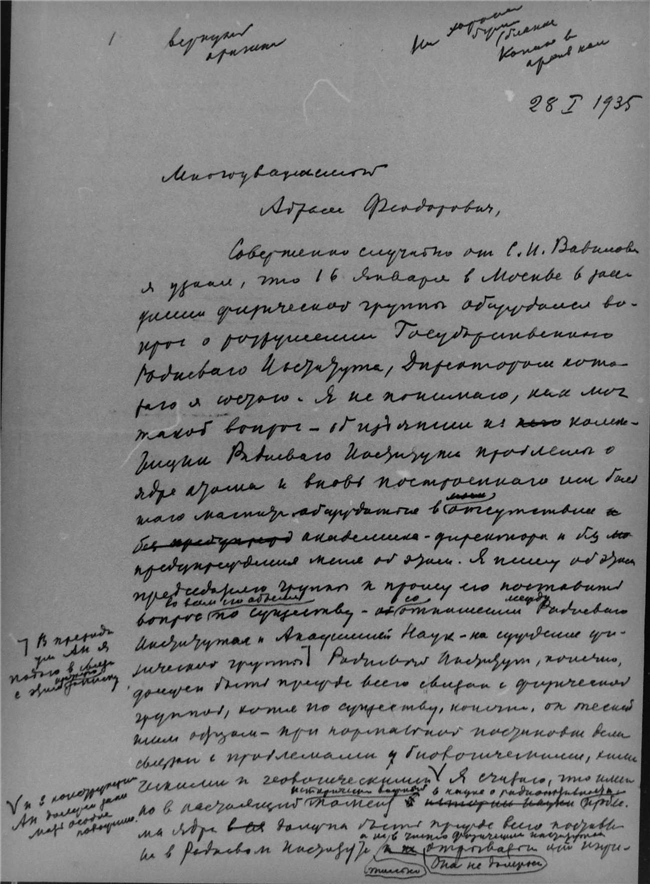 1
вернуть
На хорошей
бумаге
Копию в
архив
28 I 1935
Многоуважаемый
Абрам Федорович,
Совершенно случайно от С. И. Вавилова
я узнал, что 16 января в Москве в засе-
дании физической группы обсуждался во-
прос о разрушении Государственного
Радиевого Института, Директором кото-
рого я состою. Я не понимаю, как мог
такой вопрос – об изъятии из него компе-
тенции Радиевого Института проблемы о
ядре атома и вновь построенного им боль-
шого магнита обсуждаться в моем отсутствии и
без академика-директора и без
предупреждения меня об этом. Я пишу об этом
председателю группы и прошу его поставить
во всем его объеме
вопрос по существу – об отношении между Радиевого
Института и Академией Наук – на суждение фи-
зической группы] Радиевый Институт, конечно,
должен быть прежде всего связан с физической
группой, хотя по существу, конечно, он тесней-
шим образом – при нормальной постановке дела
связан с проблемами и биологическими, хими-
ческими и геологическими V Я считаю, что имен-
исторически в науке о радиоактивности
но в настоящий момент истории науки пробле-
ма ядра должна быть прежде всего поставле-
на в Радиевом Институте
и отрывать от
только она не должна
] В президи-
ум АН я
подаю в связи
с этим записку
V и в конструкции
АН должен зани-
мать особое
положение.